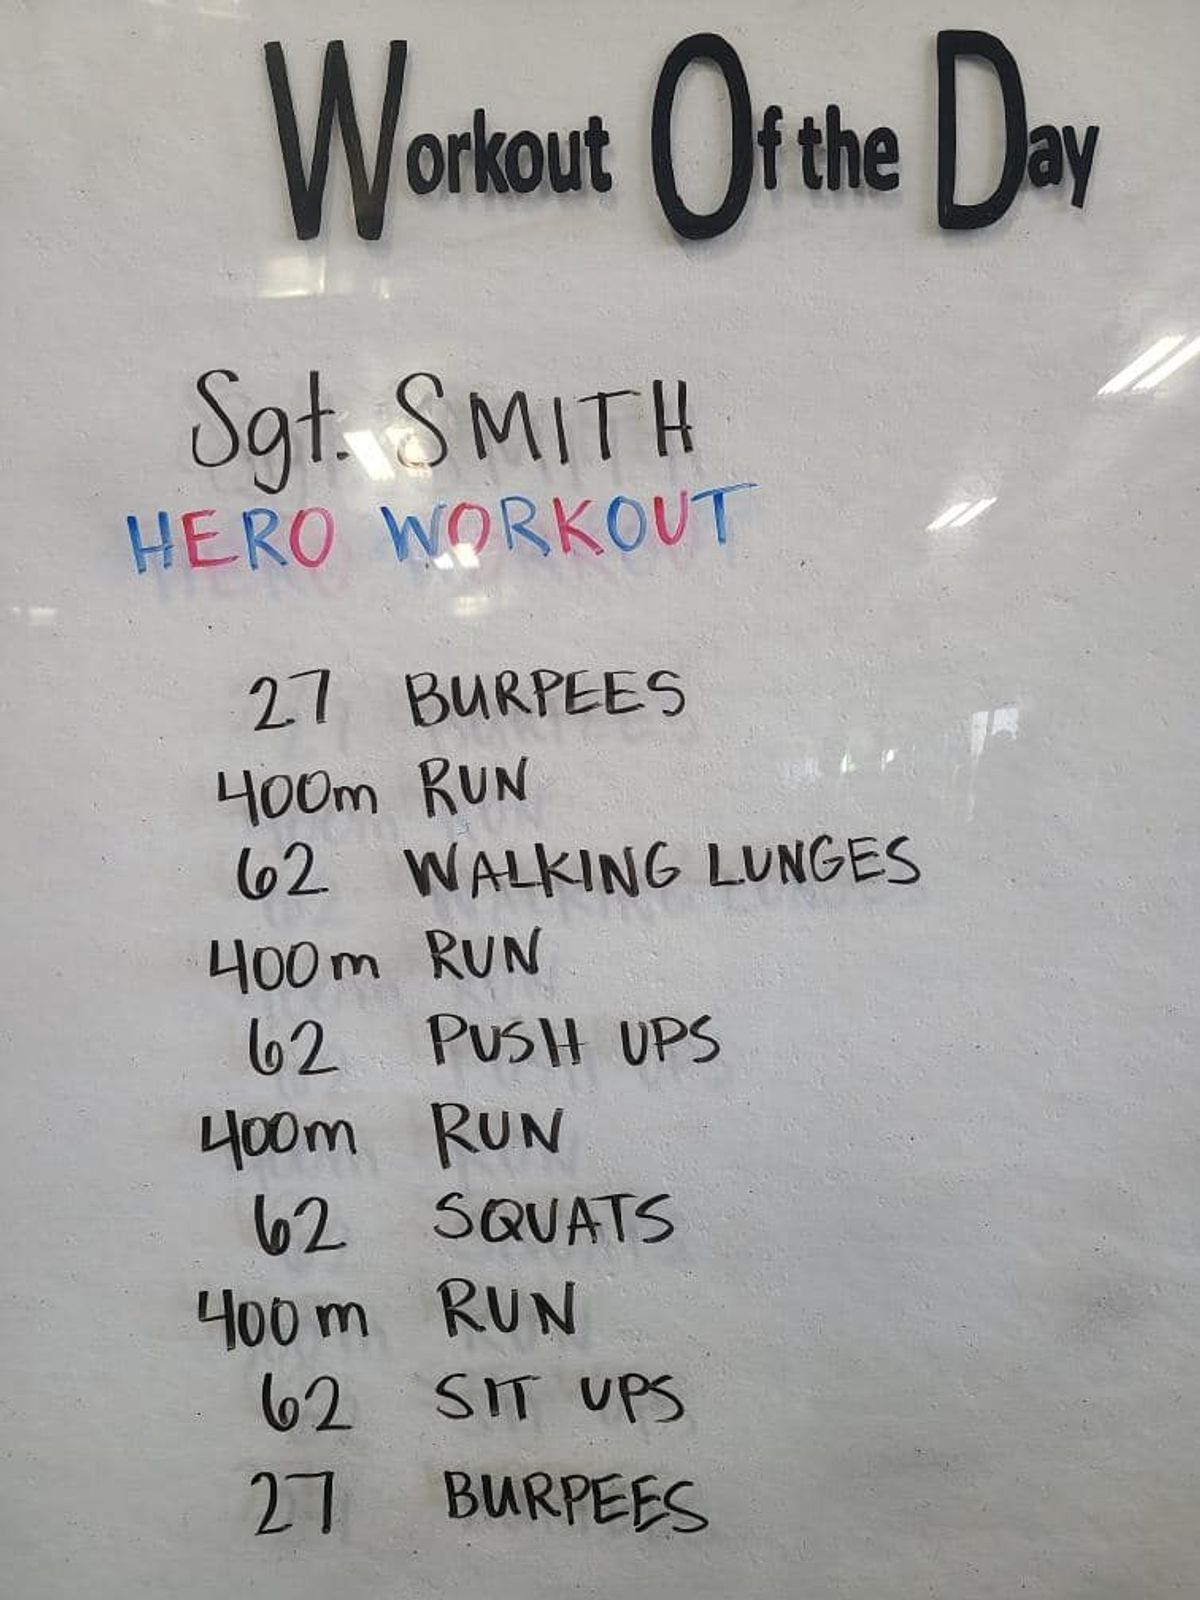 Workout Of the Day
Sgt. SMITH
HERO WORKOUT
27 BURPEES
400m RUN
62 WALKING LUNGES
400m RUN
62 PUSH UPS
400m RUN
62 SQUATS
400m RUN
62 SIT UPS
27 BURPEES